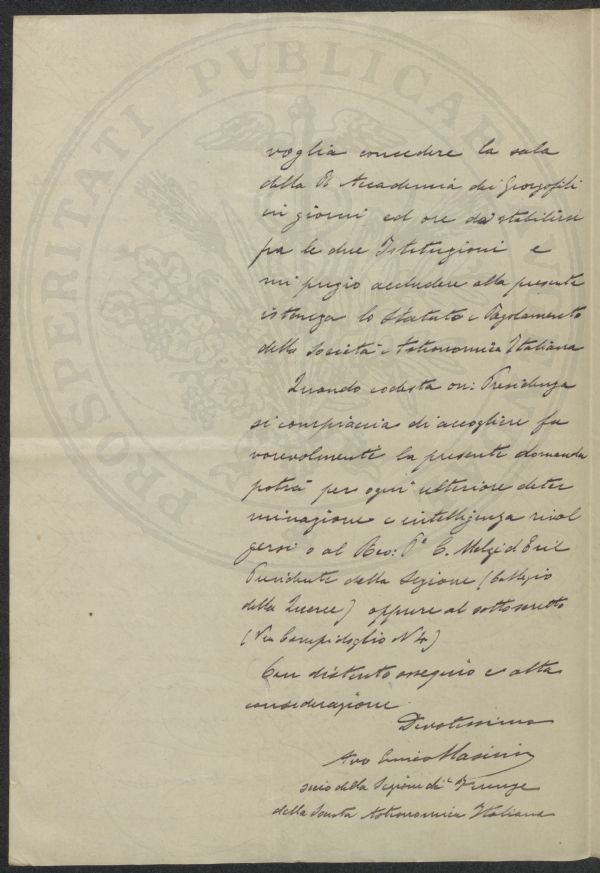 PROSPERITATI PVBLICAE
voglia concedere la sala
della R. Accademia dei Georgofili
in giorni ed ore da stabilirsi
fra le due Istituzioni e
mi pregio accludere alla presente
istanza lo Statuto e Regolamento
della Società Astronomica Italiana
Quando codesta on: Presidenza
si compiaccia di accogliere fa
vorevolmente la presente domanda
potrà per ogni ulteriore deter
minazione e intelligenza rivol
gersi o al Rev: P.e C. Melzi d'Eril
Presidente della Sezione (Collegio
della Querce) oppure al sottoscritto
(Via Campidoglio N 4)
Con distinto ossequio e alta
considerazione
Devotissimo
Avv Enrico Masini
socio della Sezione di Firenze
della Società Astronomica Italiana